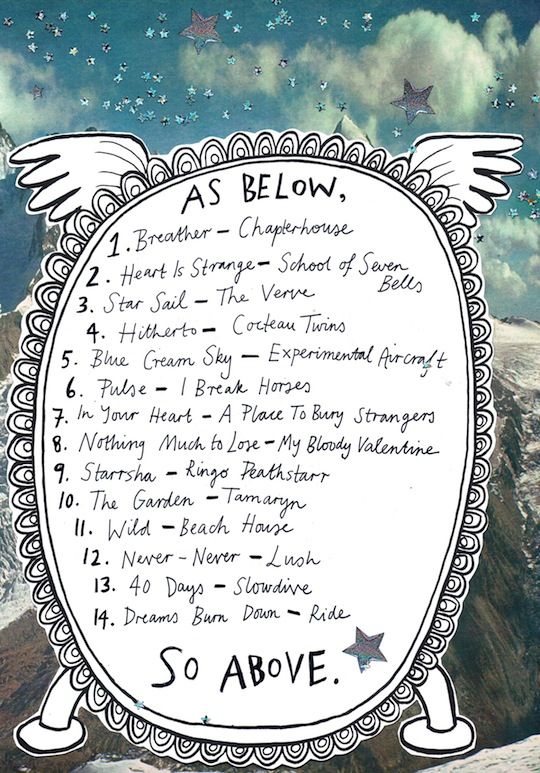 AS BELOW,
1. Breather – Chapterhouse
2. Heart Is Strange – School of Seven
Bells
3. Star Sail – The Verve
4. Hitherto – Cocteau Twins
5. Blue Cream Sky – Experimental Aircraft
6. Pulse – I Break Horses
7. In Your Heart – A Place To Bury Strangers
8. Nothing Much to Lose – My Bloody Valentine
9. Starrsha – Ringo Deathstarr
10. The Garden – Tamaryn
11. Wild – Beach House
12. Never-Never – Lush
13. 40 Days – Slowdive
14. Dreams Burn Down – Ride
SO ABOVE.